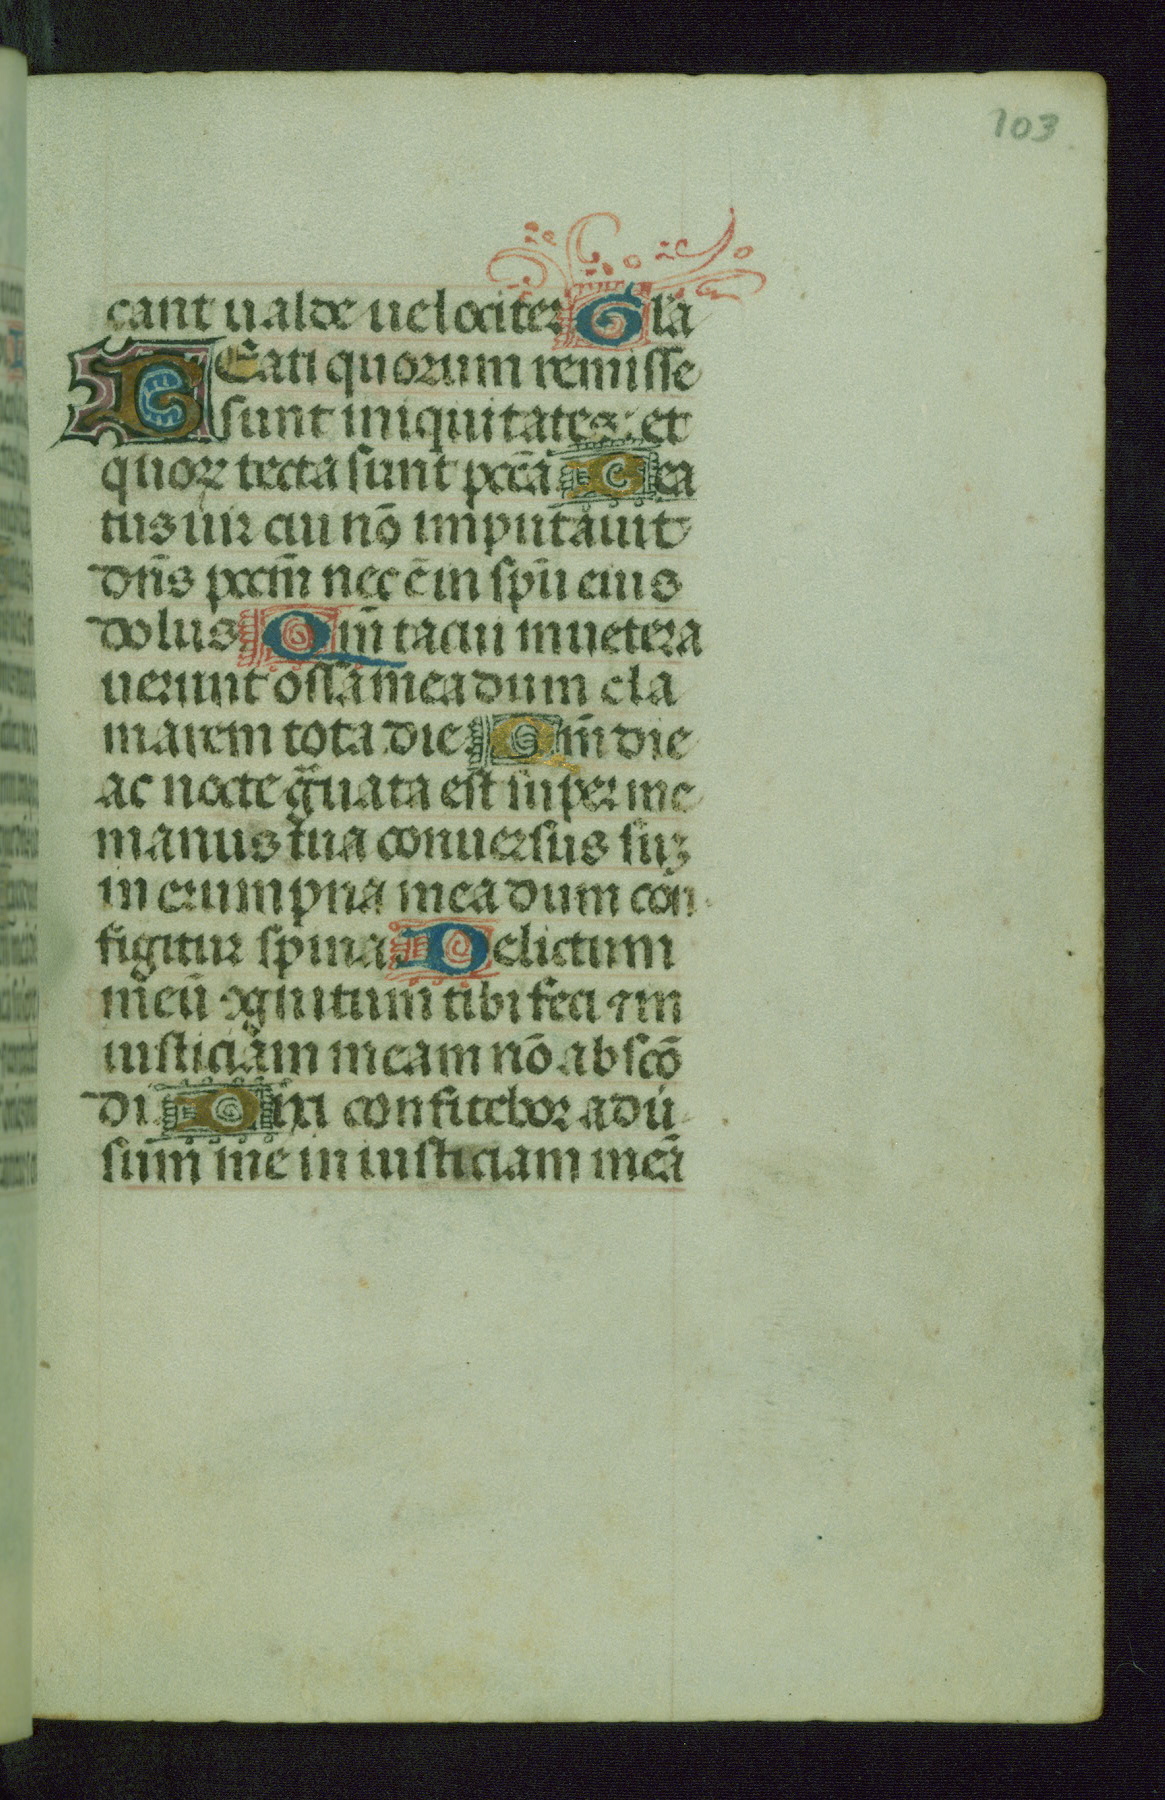 103
cant ualde uelociter Gl'a
BEati quorum remisse
sunt iniquitates: et
quoꝝ tecta sunt pccā Bea
tus uir cui nō imputauit
dn̄s pccm̄ nec ē in spū eius
dolus Qm̄ tacui inuetera
uerunt ossa mea dum cla
marem tota die Qm̄ die
ac nocte gͣuata est super me
manus tua conuersus suꝫ
in erumpna mea dum con
figitur spina Delictum
meū ꝯgnitum tibi feci ⁊ in
iusticiam meam nō abscō
di Dixi confitebor aduer
sum me in iusticiam meā